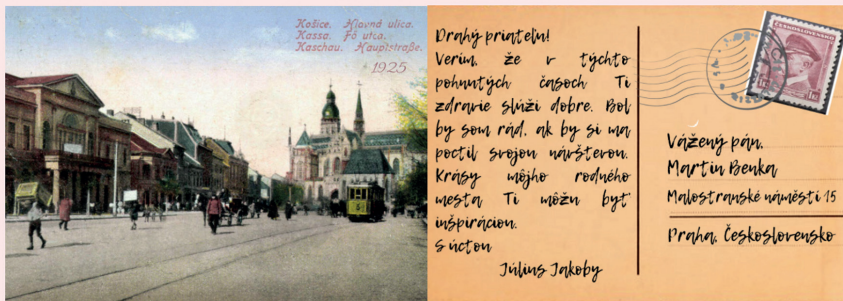 Košice. Hlavná ulica.
Kassa. Fő utca.
Kaschau. Hauptstraße.
1925
Drahý priateľu!
Verím, že v týchto
pohnutých časoch Ti
zdravie slúži dobre. Bol
by som rád, ak by si ma
poctil svojou návštevou.
Krásy môjho rodného
mesta Ti môžu byť
inšpiráciou.
S úctou
Július Jakoby
ČESKOSLOVENSKO
Vážený pán,
Martin Benka
Malostranské náměstí 15
Praha, Československo